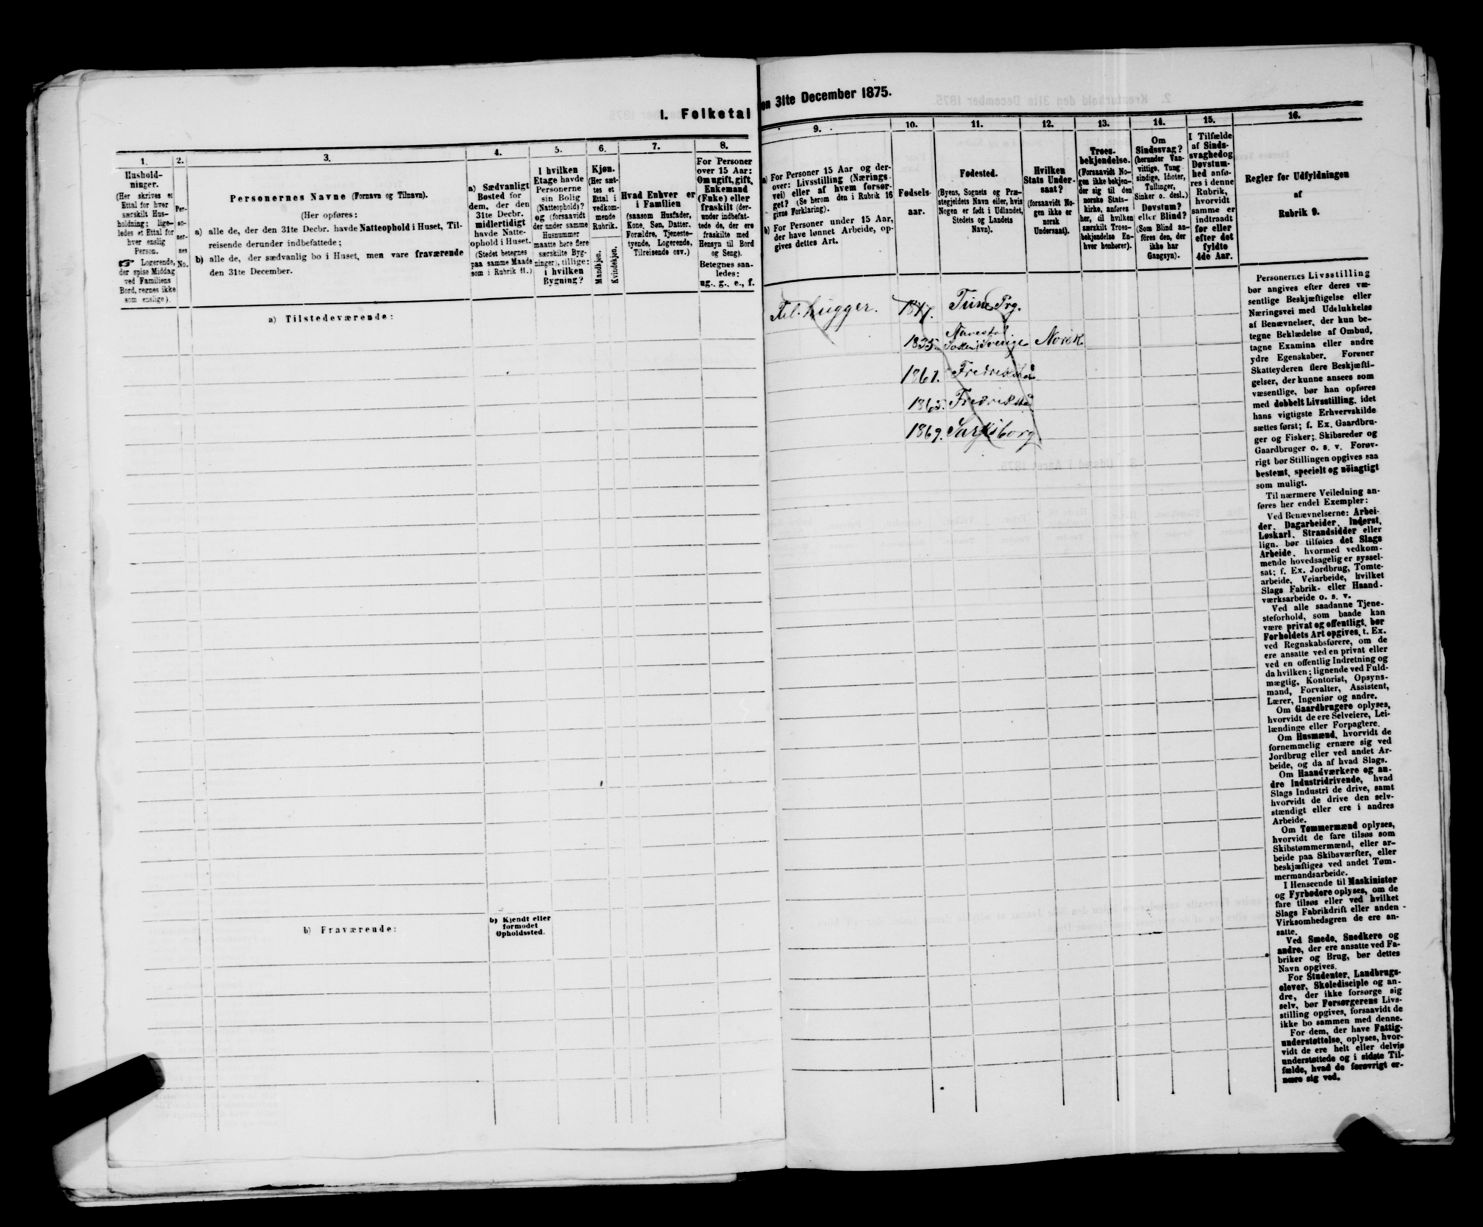 1. Folketal
1.
Hushold-
ninger.
(Her skrives et
Ettal for hver
særskilt Hus-
holdning; lige-
ledes et Ettal for
hver enslig
Person.
☛ Logerende,
der spise Middag
ved Familiens
Bord, regnes ikke
som enslige).
2.
Per-
so-
ner-
nes
No.
3.
Personernes Navne (Fornavn og Tilnavn).
(Her opføres:
a) alle de, der den 31te Decbr. havde Natteophold i Huset, Til-
reisende derunder indbefattede;
b) alle de, der sædvanlig bo i Huset, men vare fraværende
den 31te December.
4.
a) Sædvanligt
Bosted for
dem, der den
31te Decbr.
midlertidigt
havde Natte-
ophold i Huset.
(Stedet betegnes
paa samme Maade
som i Rubrik 11.)
5.
I hvilken
Etage havde
Personerne
sin Bolig
(Natteophold)?
og (forsaavidt
der under samme
Husnummer
maatte høre flere
særskilte Byg-
ninger), tillige:
i hvilken
Bygning?
6.
Kjøn.
(Her sæt-
tes et
Ettal i
vedkom-
mende
Rubrik.
Mandkjøn.
Kvindekjøn.
7.
Hvad Enhver er
i Familien
(saasom Husfader,
Kone, Søn, Datter,
Forældre, Tjeneste-
tyende, Logerende,
Tilreisende osv.)
8.
For Personer
over 15 Aar:
Om ugift, gift,
Enkemand
(Enke) eller
fraskilt (der-
under indbefat-
tede de, der ere
fraskilte med
Hensyn til Bord
og Seng).
Betegnes saa-
ledes:
ug., g., e., f.
a) Tilstedeværende:
b) Fraværende:
b) Kjendt eller
formodet
Opholdssted.
en 31te December 1875.
9.
a) For Personer 15 Aar og der-
over: Livsstilling (Nærings-
vei) eller af hvem forsør-
get? (Se herom den i Rubrik 16
givne Forklaring).
b) For Personer under 15 Aar,
der have lønnet Arbeide, op-
gives dettes Art.
10.
Fødsels-
aar.
11.
Fødested.
(Byens, Sognets og Præ-
stegjeldets Navn eller, hvis
Nogen er født i Udlandet,
Stedets og Landets
Navn).
12.
Hvilken
Stats Under-
saat?
(forsaavidt No-
gen ikke er
norsk
Undersaat).
13.
Troes-
bekjendelse.
(Forsaavidt No-
gen ikke bekjen-
der sig til den
norske Stats-
kirke, anføres
her, til hvilken
særskilt Troes-
bekjendelse En-
hver henhører).
14.
Om
Sindssvag?
(herunder Van-
vittige, Tung-
sindige, Idioter,
Tullinger,
Sinker o. desl.)
Døvstum?
eller Blind?
(Som Blind an-
føres den, der
ikke har
Gangsyn).
15.
I Tilfælde
af Sinds-
svaghed og
Døvstum-
hed anfø-
res i denne
Rubrik,
hvorvidt
samme er
indtraadt
før eller
efter det
fyldte
4de Aar.
16.
Regler for Udfyldningen
af
Rubrik 9.
1847. Tune Prg.
1835. Sverige Norsk
1861. Fredrikstad
1869. Sarpsborg
Personernes Livsstilling
bør angives efter deres væ-
sentlige Beskjæftigelse eller
Næringsvei med Udelukkelse
af Benævnelser, der kun be-
tegne Beklædelse af Ombud,
tagne Examina eller andre
ydre Egenskaber. Forener
Skatteyderen flere Beskjæfti-
gelser, der kunne ansees som
væsentlige, bør han opføres
med dobbelt Livsstilling, idet
hans vigtigste Erhvervskilde
sættes først; f. Ex. Gaardbru-
ger og Fisker; Skibsreder og
Gaardbruger o. s. v. Forøv-
rigt bør Stillingen opgives saa
bestemt, specielt og nøiagtigt
som muligt.
Til nærmere Veiledning an-
føres her endel Exempler:
Ved Benævnelserne: Arbei-
der, Dagarbeider, Inderst,
Løskarl, Strandsidder eller
lign. bør tilføies det Slags
Arbeide, hvormed vedkom-
mende hovedsagelig er syssel-
sat; f. Ex. Jordbrug, Tomte-
arbeide, Veiarbeide, hvilket
Slags Fabrik- eller Haand-
værksarbeide o. s. v.
Ved alle saadanne Tjene-
steforhold, som baade kan
være privat og offentligt, bør
Forholdets Art opgives, t. Ex.
ved Regnskabsførere, om de
ere ansatte ved en privat eller
ved en offentlig Indretning og
da hvilken; lignende ved Fuld-
mægtig, Kontorist, Opsyns-
mand, Forvalter, Assistent,
Lærer, Ingeniør og andre.
Om Gaardbrugere oplyses,
hvorvidt de ere Selveiere, Lei-
lændinge eller Forpagtere.
Om Husmænd, hvorvidt de
fornemmelig ernære sig ved
Jordbrug eller ved andet Ar-
beide, og da af hvad Slags.
Om Haandværkere og an-
dre Industridrivende, hvad
Slags Industri de drive, samt
hvorvidt de drive den selv-
stændigt eller ere i andres
Arbeide.
Om Tømmermænd oplyses,
hvorvidt de fare tilsøs som
Skibstømmermænd, eller ar-
beide paa Skibsværfter, eller
beskjæftiges ved andet Tøm-
mermandsarbeide.
I Henseende til Maskinister
og Fyrbødere oplyses, om de
fare tilsøs eller ved hvilket
Slags Fabrikdrift eller anden
Virksomhedsgren de ere an-
satte.
Ved Smede, Snedkere og
andre, der ere ansatte ved Fa-
briker og Brug, bør dettes
Navn opgives.
For Studenter, Landbrugs-
elever, Skoledisciple og an-
dre, der ikke forsørge sig
selv, bør Forsørgerens Livs-
stilling opgives, forsaavidt de
ikke bo sammen med denne.
For dem, der have Fattig-
understøttelse, oplyses, hvor-
vidt de ere helt eller delvis
understøttede og i sidste Til-
fælde, hvad de forøvrigt er-
nære sig ved.